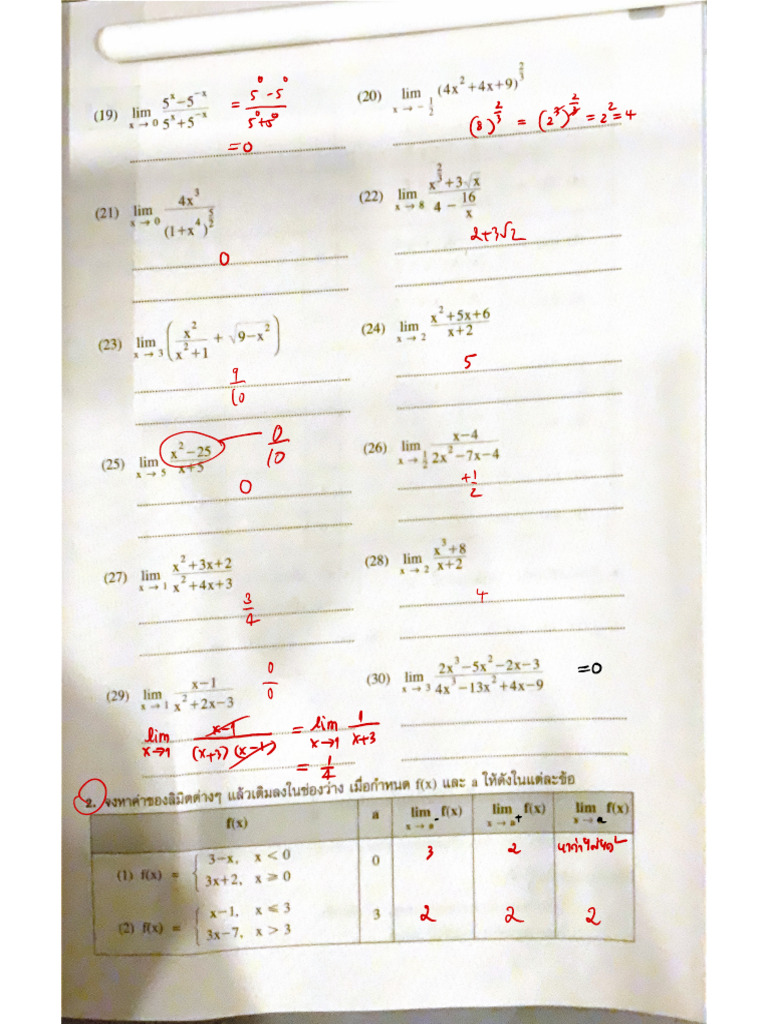 (19) lim x→0 (5^x−5^−x)/(5^x+5^−x) = (5^0−5^0)/(5^0+5^0)
=0
(20) lim x→−1/2 (4x²+4x+9)^(2/3)
(8)^(2/3) = (2^3)^(2/3) = 2² = 4
(21) lim x→0 4x³/(1+x⁴)^(5/2)
0
(22) lim x→8 (x^(2/3)+3√x)/(4 − 16/x)
2+3√2
(23) lim x→3 (x²/(x²+1) + √(9−x²))
9/10
(24) lim x→2 (x²+5x+6)/(x+2)
5
(25) lim x→5 (x²−25)/(x+5) 0/10
0
(26) lim x→1/2 (x−4)/(2x²−7x−4)
+1/2
(27) lim x→1 (x²+3x+2)/(x²+4x+3)
3/4
(28) lim x→2 (x³+8)/(x+2)
4
(29) lim x→1 (x−1)/(x²+2x−3) 0/0
lim x→1 (x−1)/((x+3)(x−1)) = lim x→1 1/(x+3)
= 1/4
(30) lim x→3 (2x³−5x²−2x−3)/(4x³−13x²+4x−9) =0
2. จงหาค่าของลิมิตต่างๆ แล้วเติมลงในช่องว่าง เมื่อกำหนด f(x) และ a ให้ดังในแต่ละข้อ
f(x) a lim x→a⁻ f(x) lim x→a⁺ f(x) lim x→a f(x)
(1) f(x) = { 3−x, x < 0 0 3 2 หาค่าไม่ได้
3x+2, x ⩾ 0
(2) f(x) = { x−1, x ⩽ 3 3 2 2 2
3x−7, x > 3